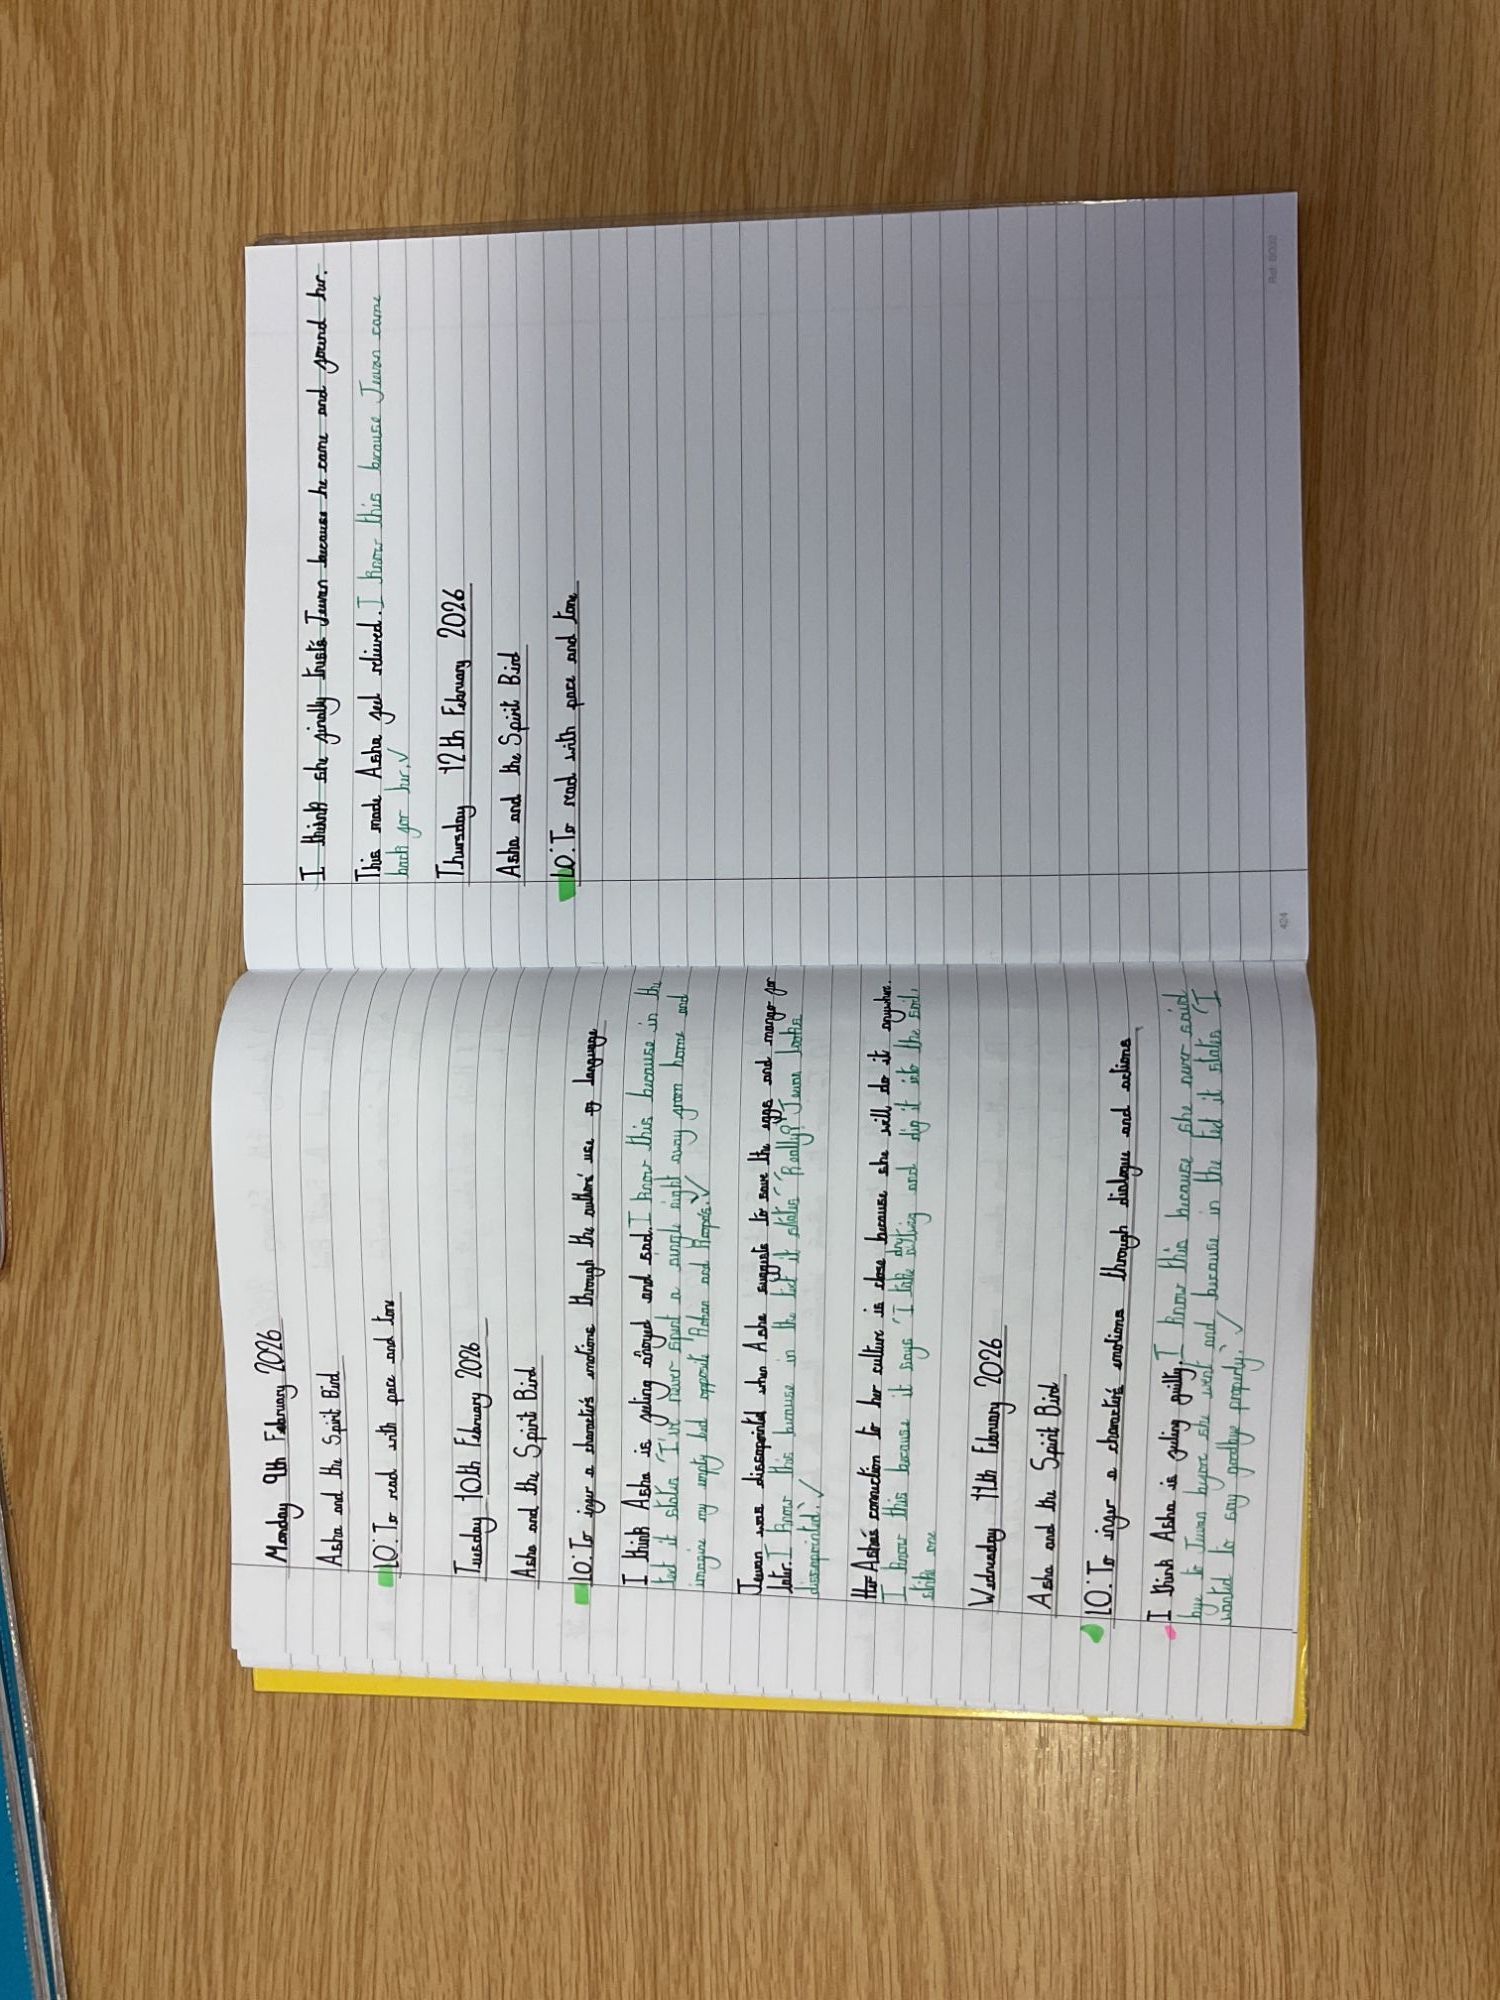 Monday 9th February 2026
Asha and the Spirit Bird
LO: To read with pace and tone
Tuesday 10th February 2026
Asha and the Spirit Bird
LO: To infer a character's emotions through the authors' use of language
I think Asha is feeling anoyed and sad. I know this because in the
text it states 'I've never spent a single night away from home and
imagine my empty bed opposite Rohan and Roopa's. ✓
Jeevan was dissapointed when Asha suggests to save the eggs and mango for
later. I know this because in the text it states "Really?" Jeevan looks
dissapointed'. ✓
Her Asha's connection to her culture is close because she will do it anywhere.
I know this because it says 'I take anything and dig it into the soil.
stike one
Wednesday 11th February 2026
Asha and the Spirit Bird
LO: To infer a character's emotions through dialogue and actions
I think Asha is feeling guilty. I know this because she never said
bye to Jeevan before she went and because in the text it states 'I
wanted to say goodbye properly'. ✓
I think she finally trusts Jeevan because he came and found her.
This made Asha feel relieved. I know this because Jeevan came
back for her. ✓
Thursday 12th February 2026
Asha and the Spirit Bird
LO: To read with pace and tone
424
Ref: BO02